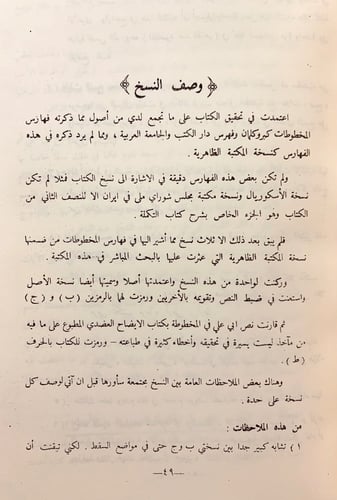 ﴿ وصف النسخ ﴾
اعتمدت في تحقيق الكتاب على ما تجمع لدي من أصول مما ذكرته فهارس
المخطوطات كبروكلمان وفهرس دار الكتب والجامعة العربية ، ومما لم يرد ذكره في هذه
الفهارس كنسخة المكتبة الظاهرية .
ولم تكن بعض هذه الفهارس دقيقة في الاشارة الى نسخ الكتاب فمثلا لم تكن
نسخة الأسكوريال ونسخة مكتبة مجلس شوراي ملي في ايران الا للنصف الثاني من
الكتاب وهو الجزء الخاص بشرح كتاب التكملة .
فلم يبق بعد ذلك الا ثلاث نسخ مما أشير اليها في فهارس المخطوطات من ضمنها
نسخة المكتبة الظاهرية التي عثرت عليها بالبحث المباشر في هذه المكتبة .
وركنت لواحدة من هذه النسخ واعتمدتها أصلا وسميتها أيضا نسخة الأصل
واستعنت في ضبط النص وتقويمه بالأخريين ورمزت لها بالرمزين ( ب ) و ( ج )
ثم قارنت نص ابي علي في المخطوطة بكتاب الايضاح العضدي المطبوع على ما فيه
من مآخذ ليست يسيرة في تحقيقه وأخطاء كثيرة في طباعته ـ ورمزت للكتاب بالحرف
( ط ) .
وهناك بعض الملاحظات العامة بين النسخ مجتمعة سأوردها قبل ان آتي لوصف كل
نسخة على حدة .
من هذه الملاحظات :
١ ) تشابه كبير جدا بين نسختي ب وج حتى في مواضع السقط . لكني تيقنت أن
—٤٩—